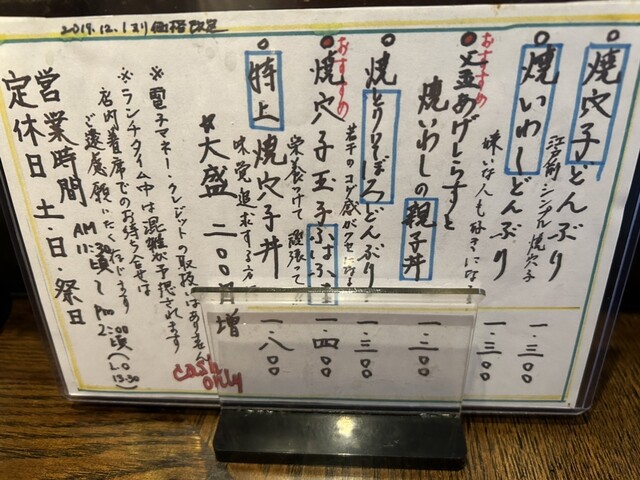 2019.12.1より価格改定
焼穴子どんぶり 一.三〇〇
江戸前・シンプル焼穴子
焼いわしどんぶり 一.三〇〇
嫌いな人も好きになる
おすすめ
釜あげしらすと
焼いわしの親子丼 一.二〇〇
焼とりそぼろどんぶり 一.三〇〇
若干のコゲ感がクセになる
おすすめ
焼穴子玉子ふはふ 一.四〇〇
栄養つけて頑張って!!
特上 焼穴子丼 一.八〇〇
味覚追求する方に
大盛 二〇〇円増
※電子マネー・クレジットの取扱はありません
cash only
※ランチタイム中は混雑が予想されます
店内着席でのお待ち合せは
ご遠慮願いたく存じます
営業時間 AM 11:30頃〜PM 2:00頃(L.O 13:30)
定休日 土・日・祭日